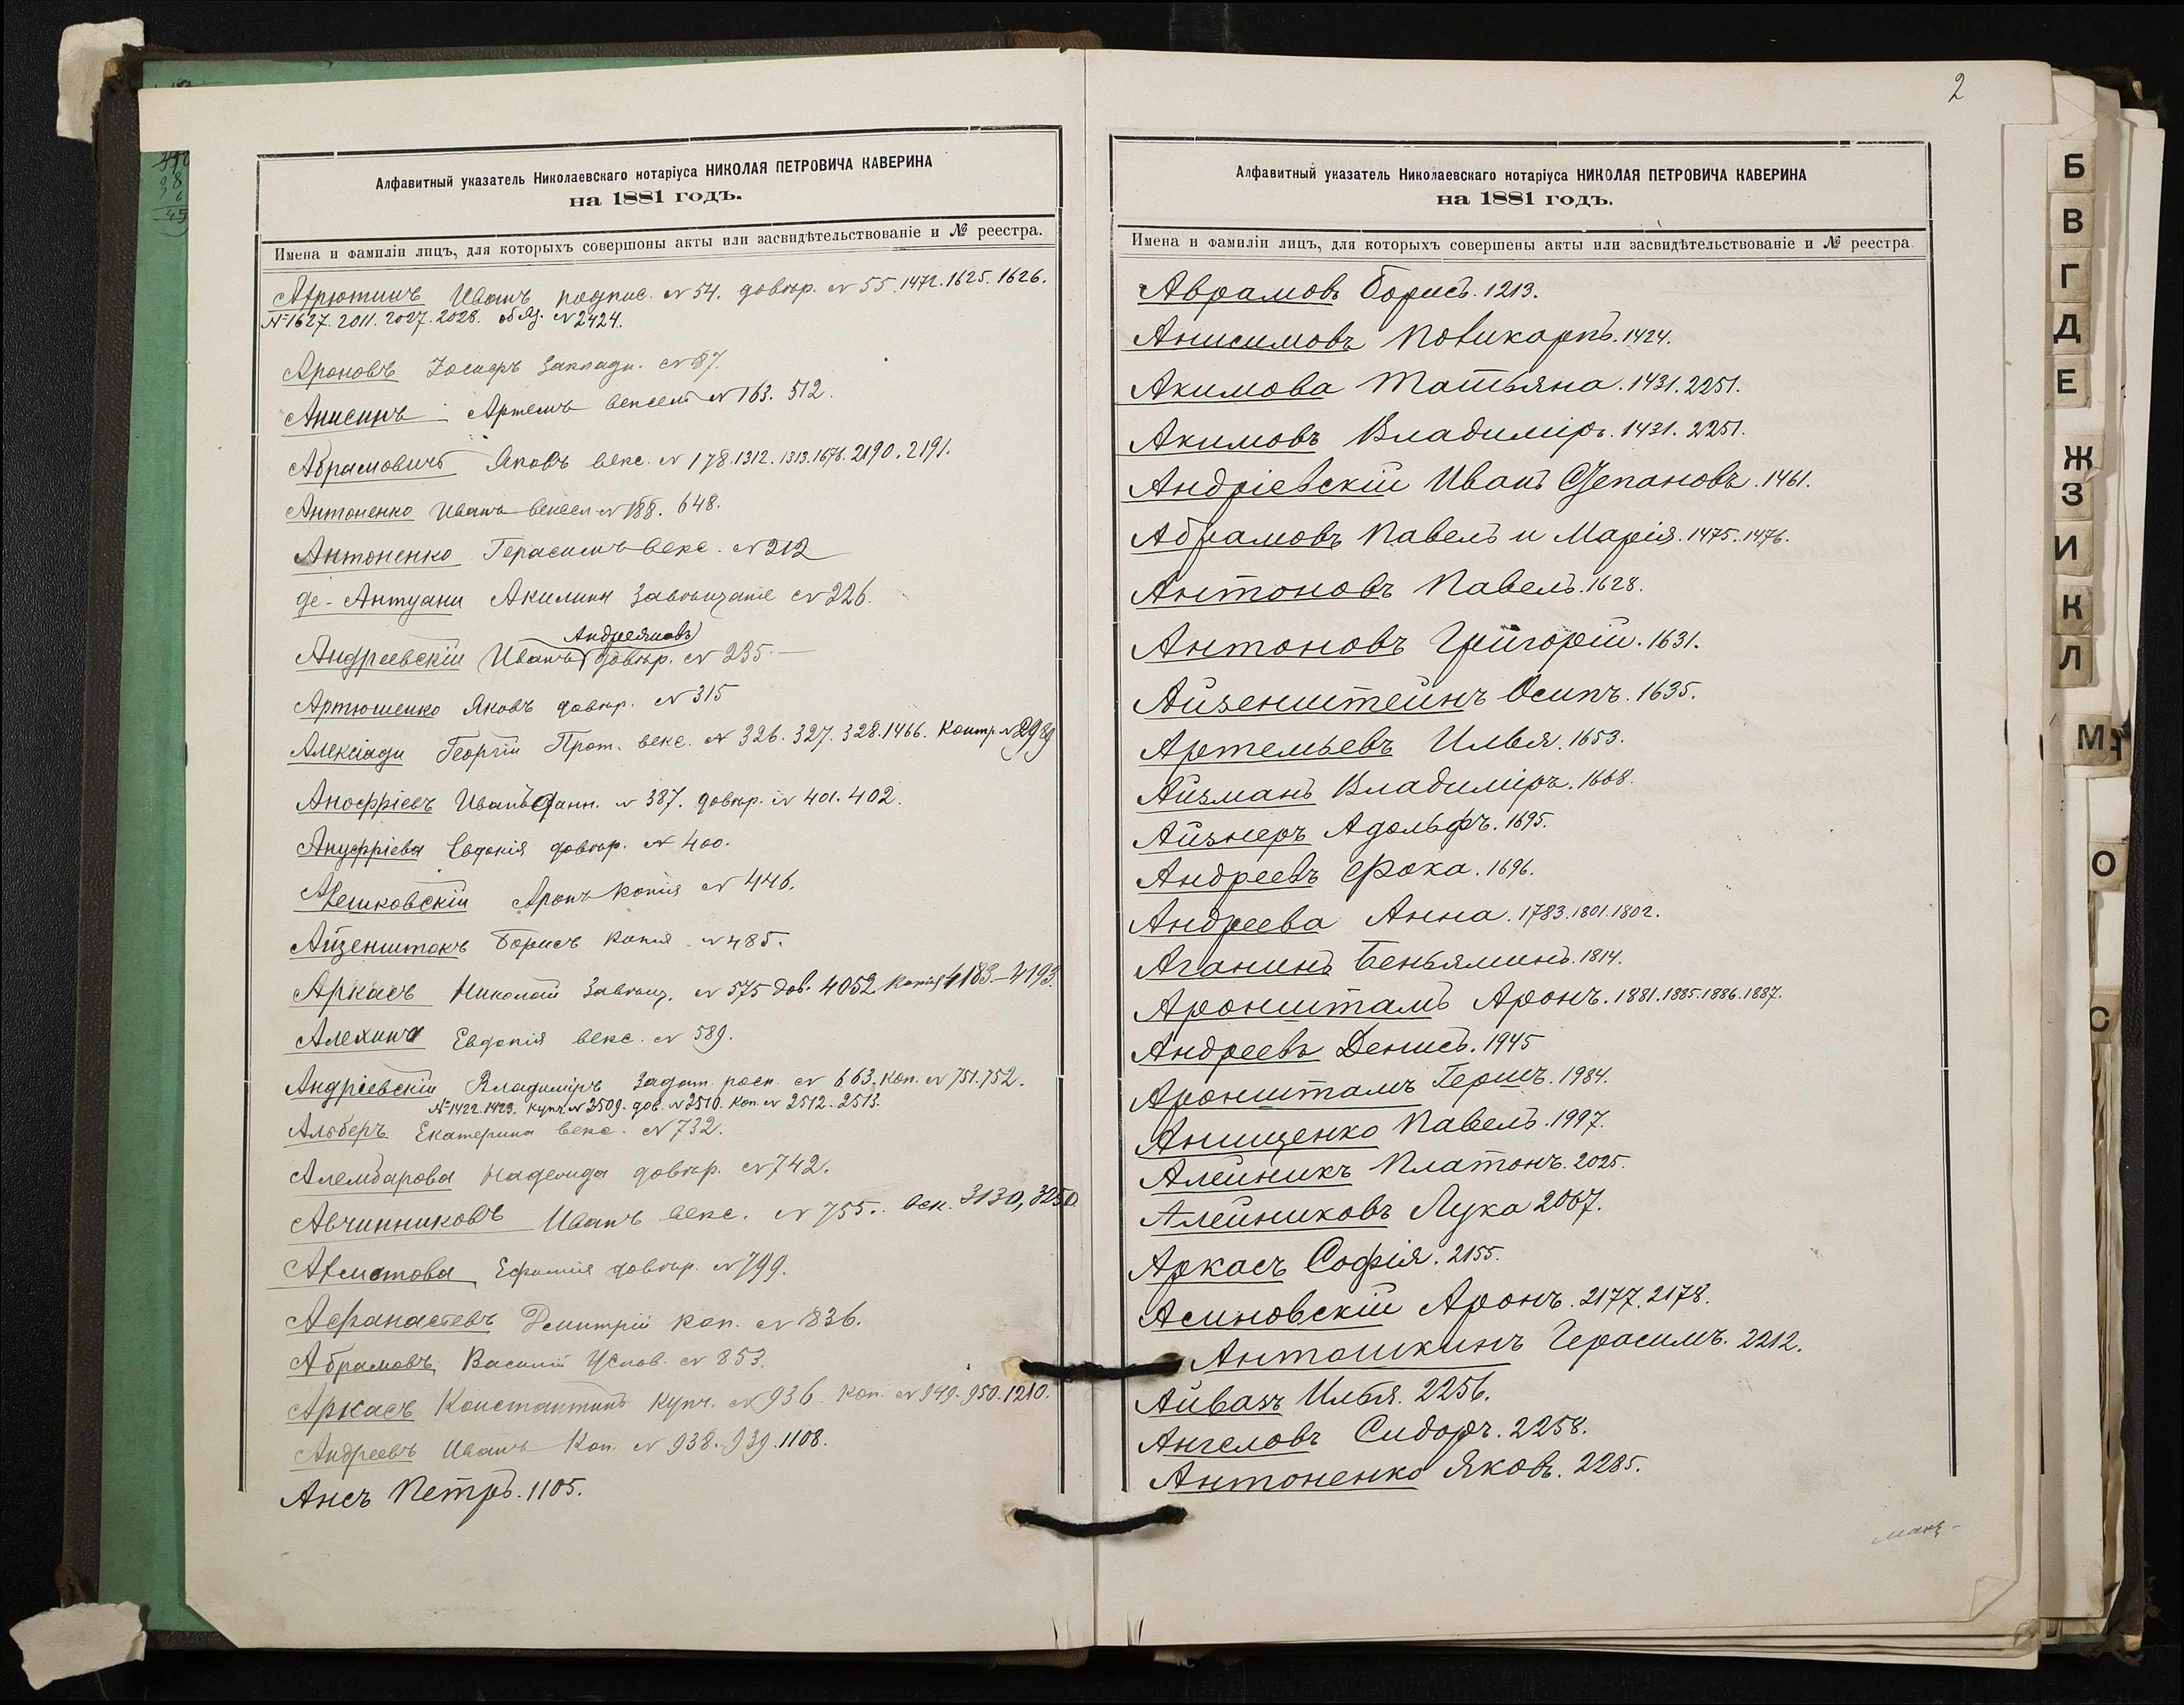 Алфавитный указатель Николаевскаго нотаріуса НИКОЛАЯ ПЕТРОВИЧА КАВЕРИНА
на 1881 годъ.
Имена и фамиліи лицъ, для которыхъ совершоны акты или засвидѣтельствованіе и № реестра.
Иванъ подпис. № 54. довѣр. № 55. 1472. 1625. 1626.
№ 1627. 2011. 2027. 2028. обяз. № 2424.
Ароновъ Іосифъ Закладн. № 87.
Артемъ вексель № 163. 512.
Абрамовичъ Яковъ векс. № 178. 1312. 1313. 1676. 2190. 2191.
Антоненко Иванъ вексел № 188. 648.
Антоненко Герасимъ векс. № 212
де-Антуани Акилина Завѣщаніе № 226.
Андреевскій Иванъ Андреяновъ довѣр. № 235.
Артюшенко Яковъ довѣр. № 315
Алексіади Георгій Прот. векс. № 326. 327. 328. 1466. Контр. № 2989
Анофріевъ Иванъ № 387. довѣр. № 401. 402.
Ануфріева Евдокія довѣр. № 400.
Аронъ копія № 446.
Айзенштокъ Борисъ копія № 485.
Аркасъ Николай Завѣщ. № 575 дов. 4052 копія 4183-4193.
Алехина Евдокія векс. № 589.
Андріевскій Владиміръ Задат. росп. № 663. коп. № 751. 752.
№ 1422. 1423. купч. № 2509. дов. № 2510. коп. № 2512. 2513.
Альберъ Екатерина векс. № 732.
Надежда довѣр. № 742.
Авчинниковъ Иванъ векс. № 755. век. 3130, 3250
Ахматова Ефимія довѣр. № 799.
Афанасьевъ Дмитрій коп. № 836.
Абрамовъ Василій Услов. № 853.
Аркасъ Константинъ купч. № 936 коп. № 949. 950. 1210.
Андреевъ Иванъ Коп. № 938. 939. 1108.
Ансъ Петръ. 1105.
2
Алфавитный указатель Николаевскаго нотаріуса НИКОЛАЯ ПЕТРОВИЧА КАВЕРИНА
на 1881 годъ.
Имена и фамиліи лицъ, для которыхъ совершены акты или засвидѣтельствованіе и № реестра.
Аврамовъ Борисъ. 1213.
Анисимовъ Поликарпъ. 1424.
Акимова Татьяна. 1431. 2251.
Акимовъ Владиміръ. 1431. 2251.
Андріевскій Иванъ Степановъ. 1461.
Абрамовъ Павелъ и Марія. 1475. 1476.
Антоновъ Павелъ. 1628.
Антоновъ Григорій. 1631.
Айзенштейнъ Осипъ. 1635.
Артемьевъ Илья. 1653.
Айзманъ Владиміръ. 1668.
Айзнеръ Адольфъ. 1695.
Андреевъ Фока. 1696.
Андреева Анна. 1783. 1801. 1802.
Аганинъ Беньяминъ. 1814.
Аронштамъ Аронъ. 1881. 1885. 1886. 1887.
Андреевъ Денисъ. 1945
Аронштамъ Гершъ. 1984.
Анищенко Павелъ. 1997.
Алейникъ Платонъ. 2025.
Алейниковъ Лука 2067.
Аркасъ Софія. 2155.
Асиновскій Аронъ. 2177. 2178.
Антошкинъ Герасимъ. 2212.
Айвазъ Илья. 2256.
Ангеловъ Сидоръ. 2258.
Антоненко Яковъ. 2285.
Б
В
Г
Д
Е
Ж
З
И
К
Л
М
О
С